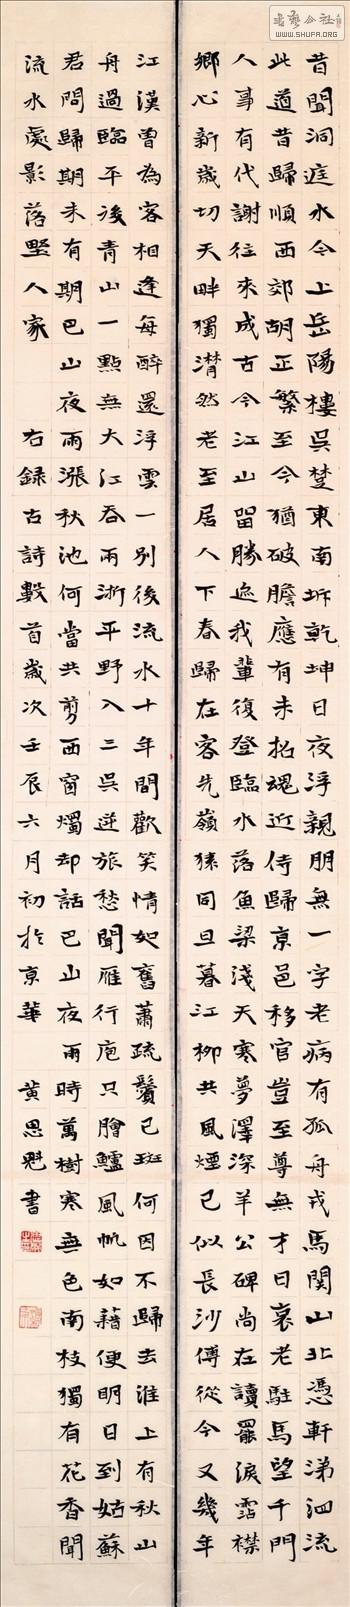 昔聞洞庭水今上岳陽樓吳楚東南坼乾坤日夜浮親朋無一字老病有孤舟戎馬關山北憑軒涕泗流
此道昔歸順西郊胡正繁至今猶破膽應有未招魂近侍歸京邑移官豈至尊無才日衰老駐馬望千門
人事有代謝往來成古今江山留勝迹我輩復登臨水落魚梁淺天寒夢澤深羊公碑尚在讀罷淚霑襟
鄉心新歲切天畔獨潸然老至居人下春歸在客先嶺猿同旦暮江柳共風煙已似長沙傅從今又幾年
江漢曾為客相逢每醉還浮雲一別後流水十年間歡笑情如舊蕭疏鬢已斑何因不歸去淮上有秋山
舟過臨平後青山一點無大江吞兩浙平野入三吳逆旅愁聞雁行庖只膾鱸風帆如藉便明日到姑蘇
君問歸期未有期巴山夜雨漲秋池何當共剪西窗燭却話巴山夜雨時萬樹寒無色南枝獨有花香聞
流水處影落墅人家 右録古詩數首歲次壬辰六月初於京華 黃思魁書
WWW.SHUFA.ORG